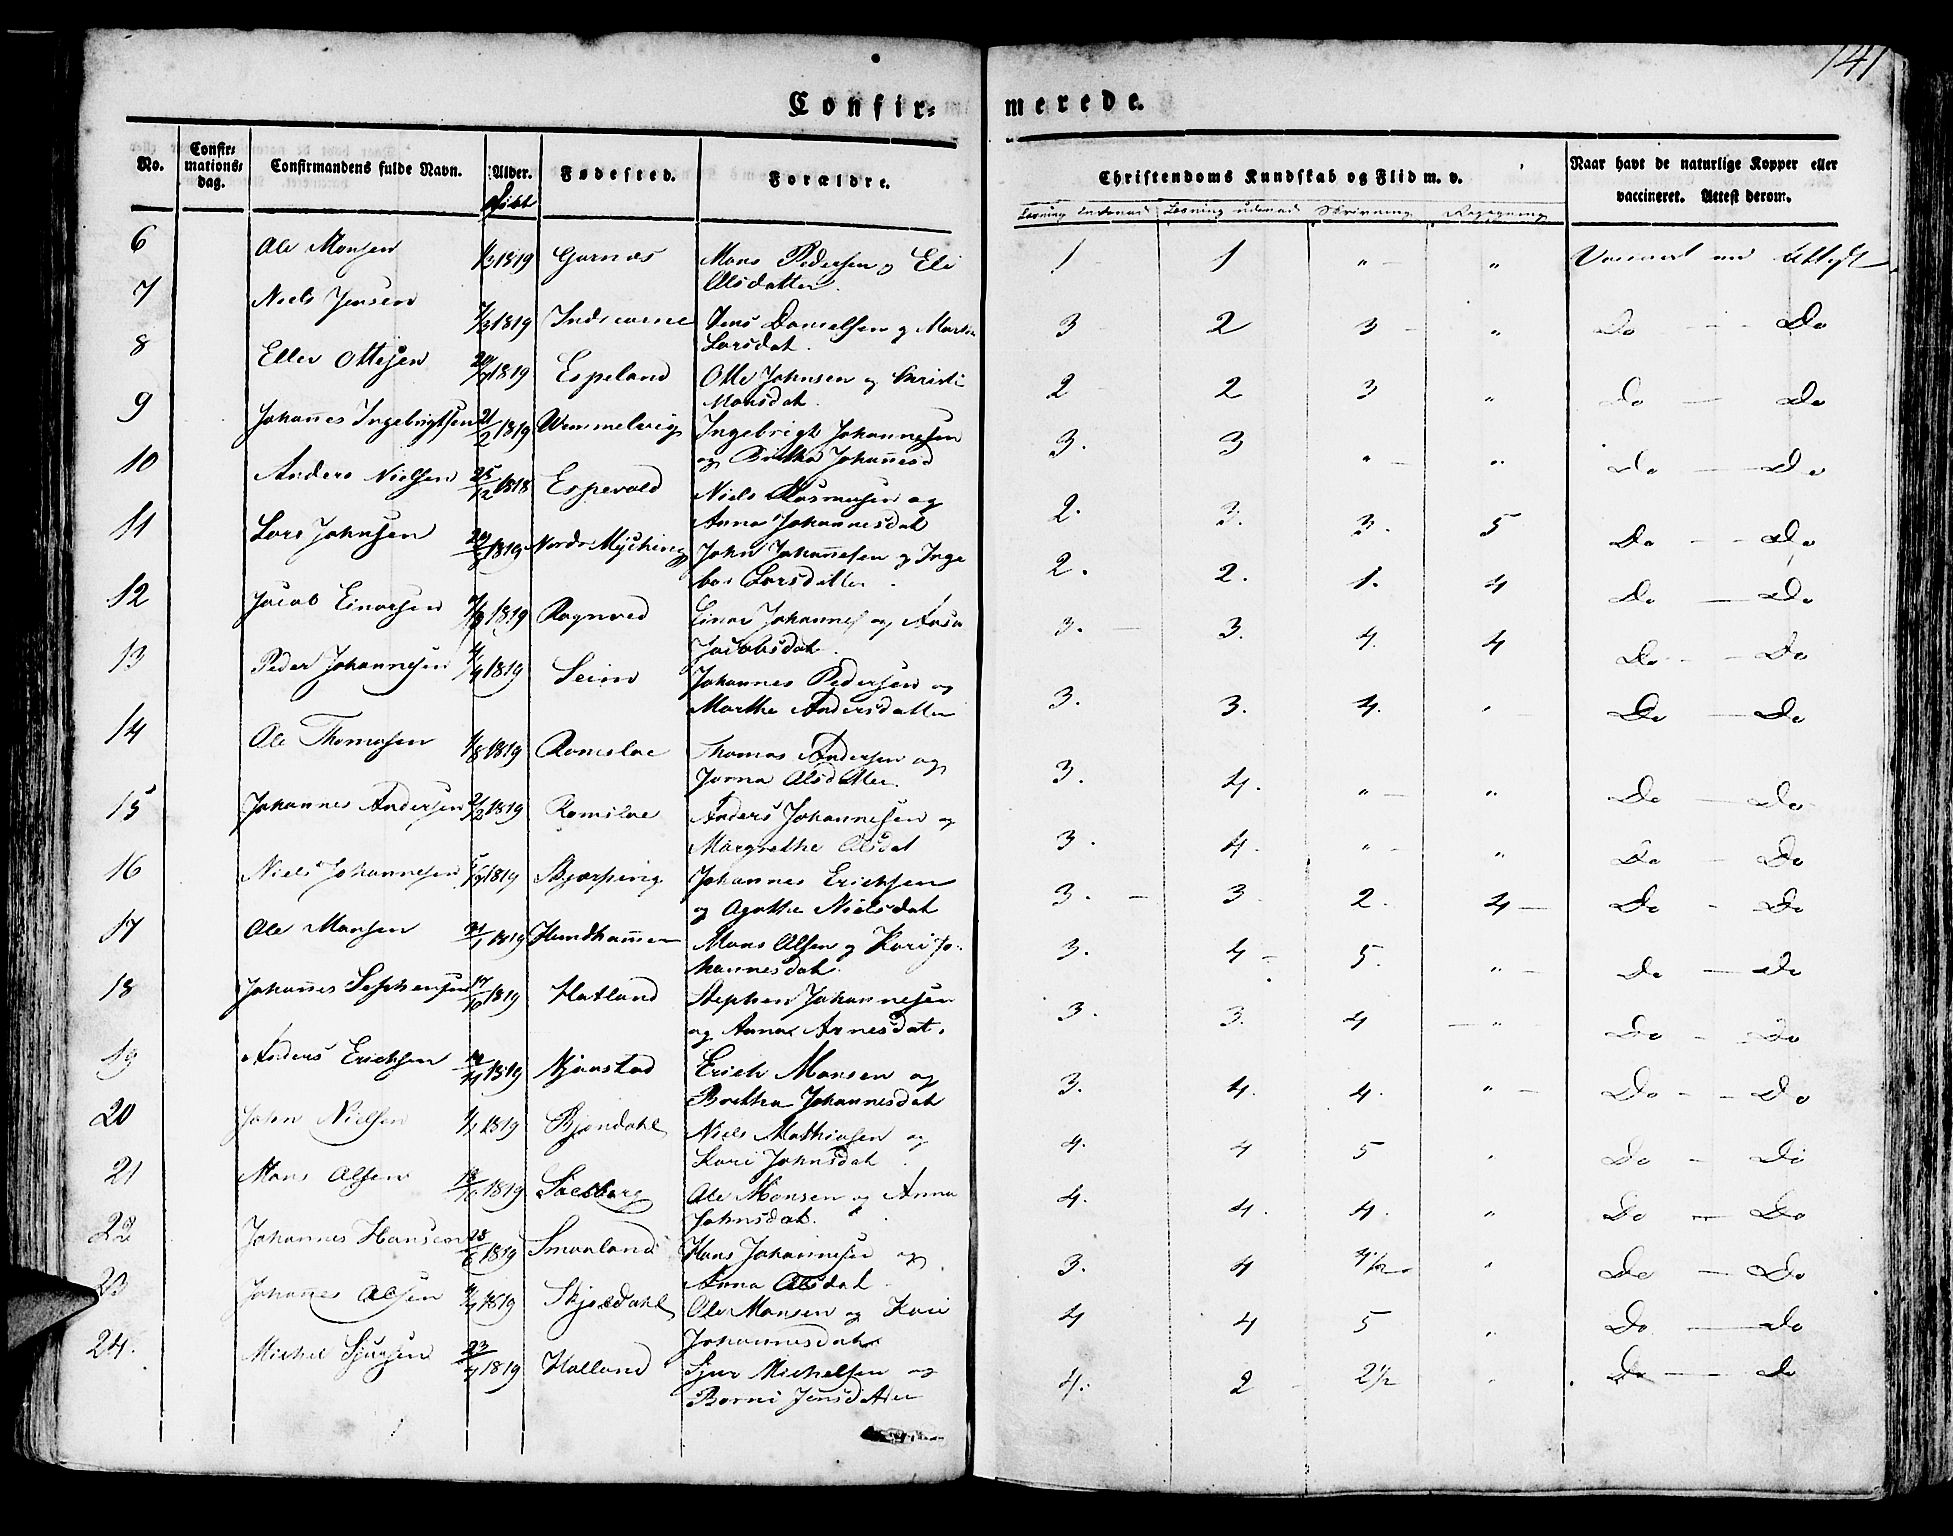 141
Confir- merede.
No. Confir-mations-dag. Confirmandens fulde Navn. Alder. Fødested. Forældre. Christendoms Kundskab og Flid m. v. Naar havt de naturlige Kopper eller vaccineret. Attest derom.
Læsning indenad Læsning udenad Skrivning Regegning
6 Ole Monsen 1819 Garnæs Mons Pedersen og Eli 1 1 " "
Olsdatter
7 Niels Jensen 1819 Jens Danielsen og Marta 3 2 3 " Do Do
Larsdat.
8 Eller Ottesen 1819 Espeland Otte Johnsen og Christi 2 2 3 " Do Do
Monsdat.
9 Johannes Ingebrigtsen 21/2 1819 Ingebrigt Johannesen 3. 3 " " Do Do
og Britha Johannesd
10 Anders Nielsen 25/12 1818 Espevold Niels Rasmusen og 2. 3. 3. 5 Do Do
Anna Johannesdat
11 Lars Johnsen 1819 John Johannesen og Inge 2. 2. 1. 4 Do Do
bor Larsdatter
12 Jacob Einarsen 1819 Rognved Einar Johannes og Aasa 3. 3. 4. 4 Do Do
Jacobsdat.
13 Peder Johannesen 1819 Seim Johannes Pedersen og 3. 3. 4. " Do Do
Marthe Andersdatter
14 Ole Thomasen 1/8 1819 Romsloe Thomas Andersen og 3. 4. " " Do Do
Jorna Olsdatter
15 Johannes Andersen 2/2 1819 Romsloe Anders Johannesen og 3. 4. " " Do Do
Margrethe Olsdat
16 Niels Johannesen 1819 Skjærping Johannes Ericksen 3. 3 2. 4 Do Do
og Agathe Nielsdat
17 Ole Monsen 1819 Hundhammer Mons Olsen og Kari Jo- 3. 4 5. " Do Do
hannesdat.
18 Johannes Stephensen 1819 Hatland Stephen Johannesen 3. 3. 4 " Do Do
og Anna Arnesdat.
19 Anders Ericksen 1819 Njaastad Erich Monsen og 3. 4. 4. " Do Do
Britha Johannesdat
20 John Nielsen 1819 Bjøndahl Niels Mathiasen og 4. 4 5 " Do Do
Kari Johnsdat
21 Mons Olsen 1819 Solberg Ole Monsen og Anna 4. 4. 4. " Do Do
Johnsdat.
22 Johannes Hansen 28/6 1819 Smaaland Hans Johannesen og 3. 4 4 1/2 " Do Do
Anna Olsdat
23 Johannes Olsen 1819 Skjoldahl Ole Monsen og Kari 4 4 5 " Do Do
Johannesdat.
24. Michel Sjursen 1819 Halland Sjur Michelsen og 4. 2 2 1/2 " Do Do
Borni Jensdatter